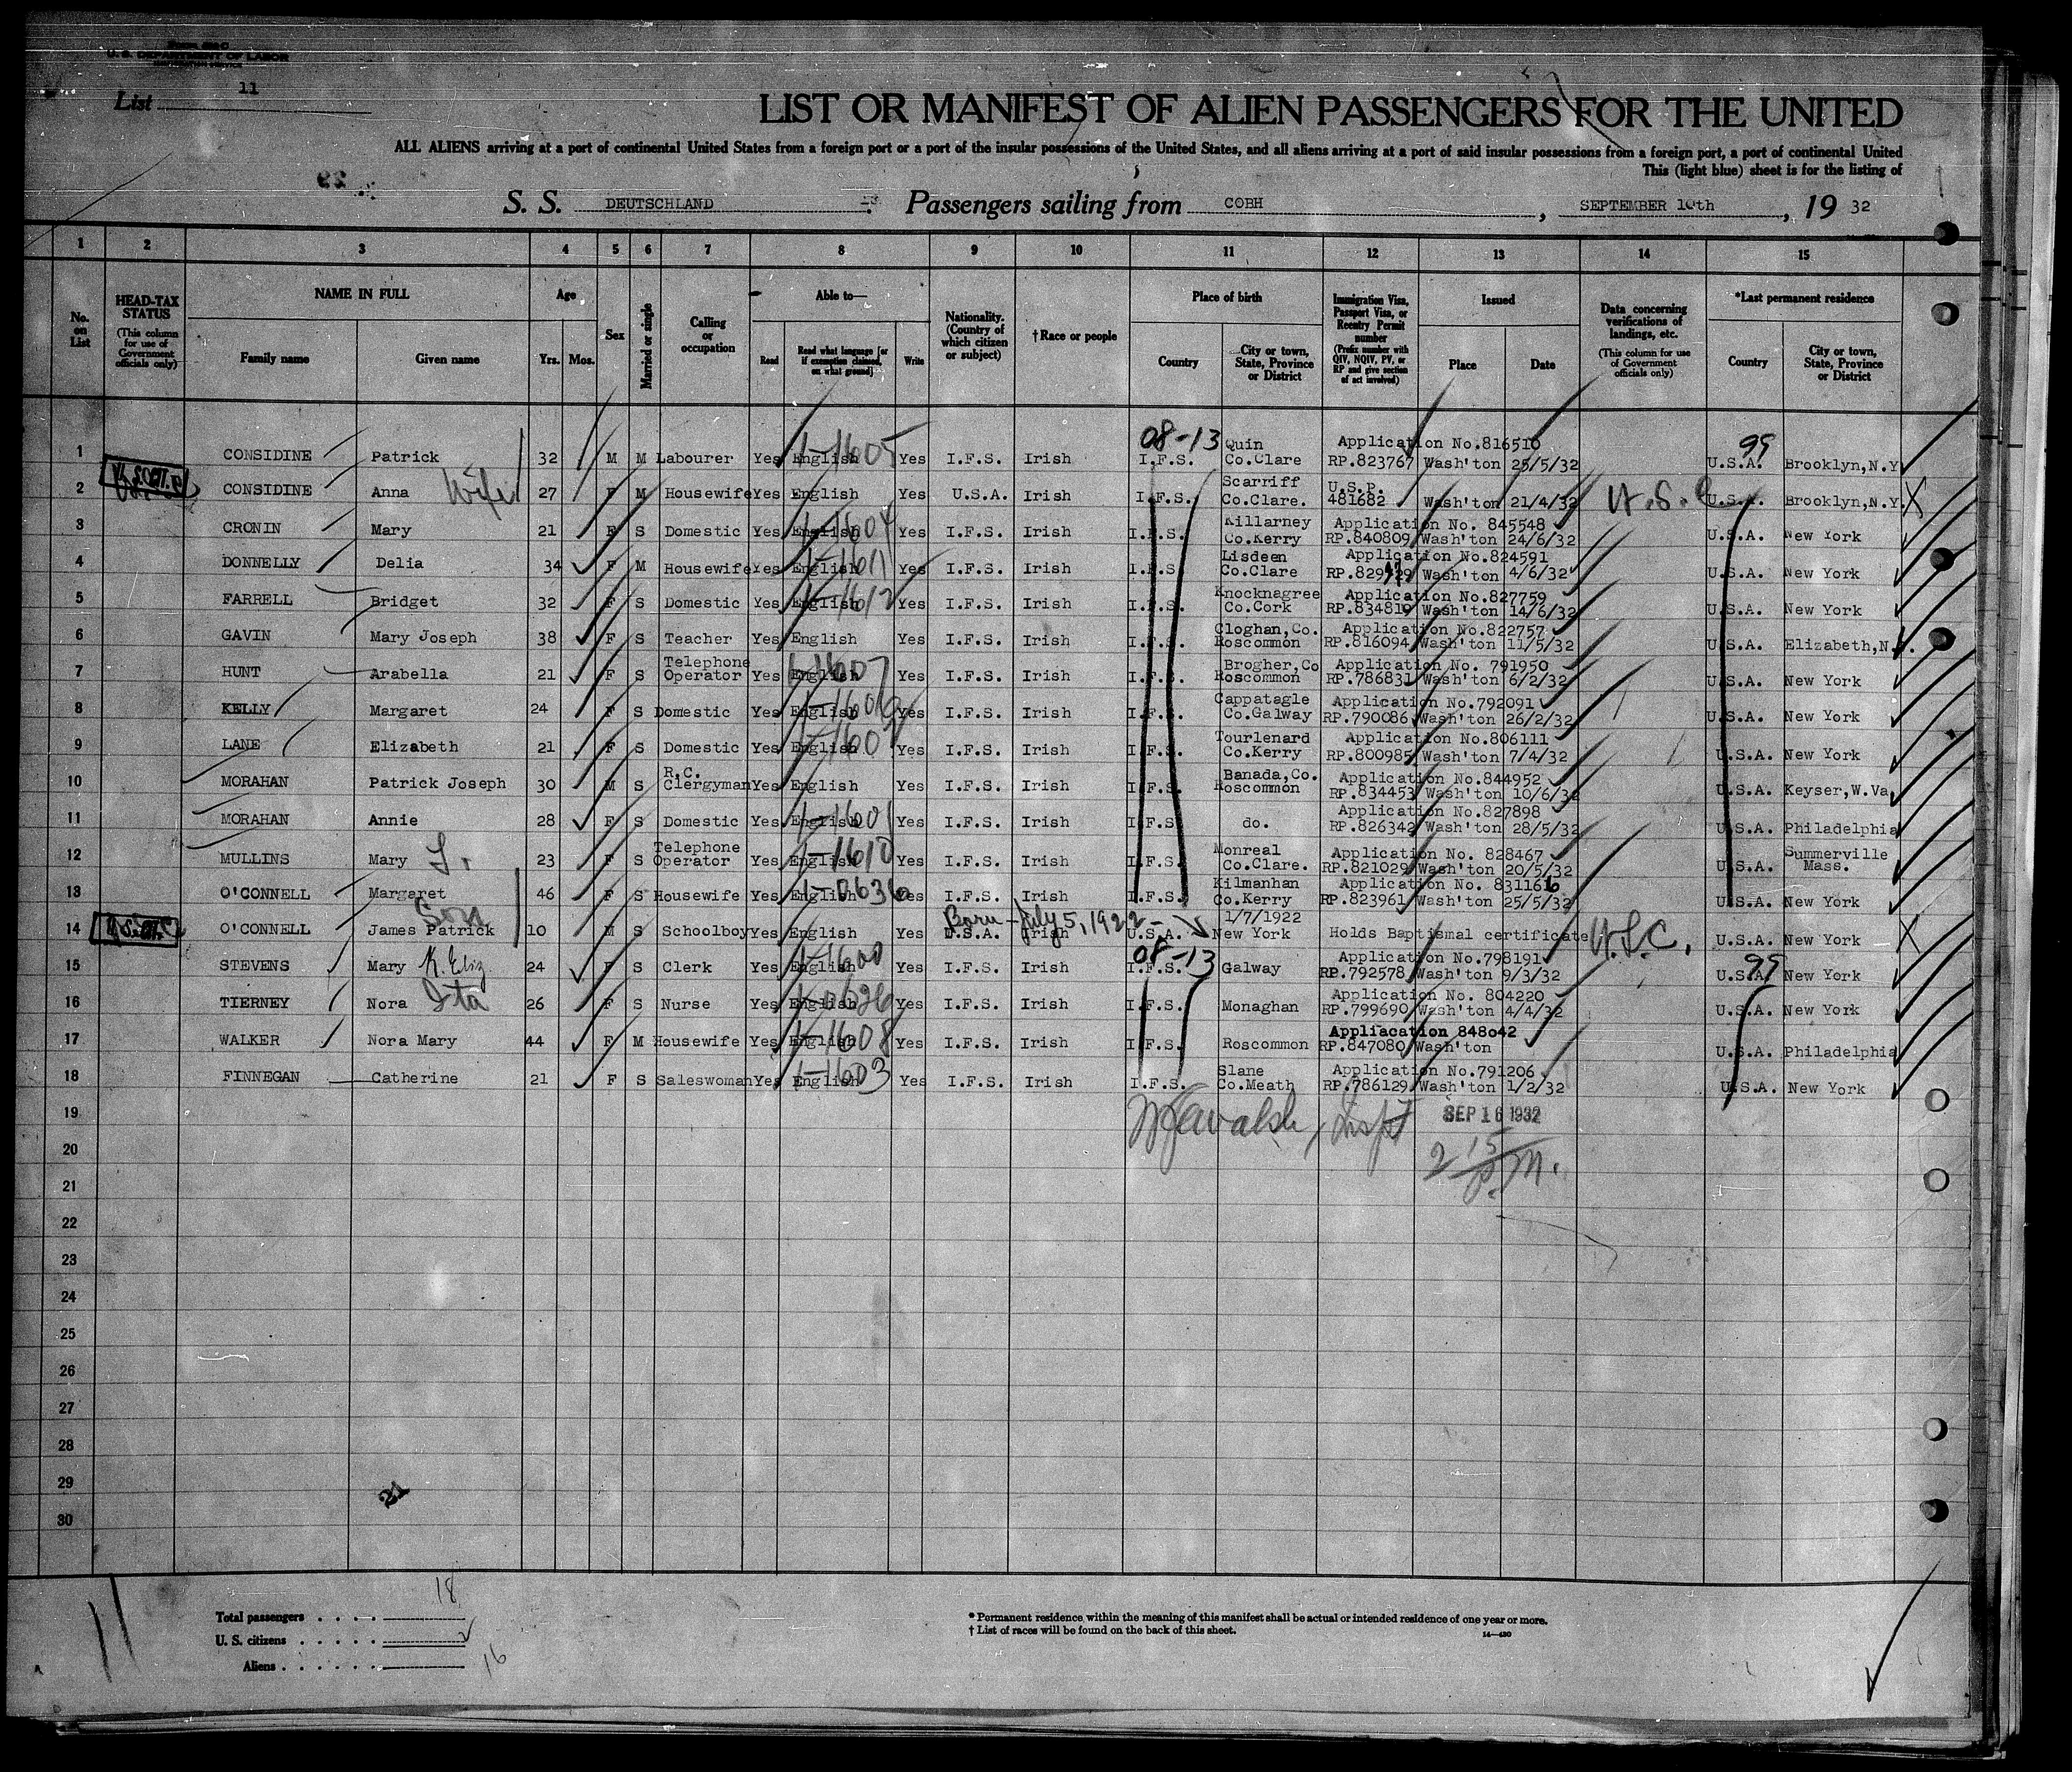 U. S. DEPARTMENT OF LABOR
List 11
LIST OR MANIFEST OF ALIEN PASSENGERS FOR THE UNITED
ALL ALIENS arriving at a port of continental United States from a foreign port or a port of the insular possessions of the United States, and all aliens arriving at a port of said insular possessions from a foreign port, a port of continental United
This (light blue) sheet is for the listing of
S. S. DEUTSCHLAND Passengers sailing from COBH, SEPTEMBER 10th, 19 32
1 2 3 4 5 6 7 8 9 10 11 12 13 14 15
No. on List
HEAD-TAX STATUS (This column for use of Government officials only)
NAME IN FULL Family name Given name
Age Yrs. Mos.
Sex
Married or single
Calling or occupation
Able to— Read Read what language [or if exemption claimed, on what ground] Write
Nationality. (Country of which citizen or subject)
†Race or people
Place of birth Country City or town, State, Province or District
Immigration Visa, Passport Visa, or Reentry Permit number (Prefix number with QIV, NQIV, PV, or RP and give section of act involved)
Issued Place Date
Data concerning verifications of landings, etc. (This column for use of Government officials only)
*Last permanent residence Country City or town, State, Province or District
08-13 Quin Application No.816510 99
1 CONSIDINE Patrick 32 M M Labourer Yes English 1-1605 Yes I.F.S. Irish I.F.S. Co.Clare RP.823767 Wash'ton 25/5/32 U.S.A. Brooklyn,N.Y
Scarriff U.S.P.
2 CONSIDINE Anna Wife 27 F M Housewife Yes English Yes U.S.A. Irish I.F.S. Co.Clare. 481682 Wash'ton 21/4/32 U.S.C. U.S.A. Brooklyn,N.Y. X
Killarney Application No. 845548
3 CRONIN Mary 21 F S Domestic Yes English 1-1604 Yes I.F.S. Irish I.F.S. Co.Kerry RP.840809 Wash'ton 24/6/32 U.S.A. New York
Lisdeen Application No.824591
4 DONNELLY Delia 34 F M Housewife Yes English 1-1611 Yes I.F.S. Irish I.F.S Co.Clare Wash'ton 4/6/32 U.S.A. New York
Knocknagree Application No.827759
5 FARRELL Bridget 32 F S Domestic Yes English 1-1612 Yes I.F.S. Irish I.F.S. Co.Cork RP.834819 Wash'ton 14/6/32 U.S.A. New York
Cloghan,Co. Application No.822757
6 GAVIN Mary Joseph 38 F S Teacher Yes English Yes I.F.S. Irish I.F.S. Roscommon RP.816094 Wash'ton 11/5/32 U.S.A. Elizabeth,N.J.
Telephone Brogher,Co Application No. 791950
7 HUNT Arabella 21 F S Operator Yes English 1-1607 Yes I.F.S. Irish I.F.S. Roscommon RP.786831 Wash'ton 6/2/32 U.S.A. New York
Cappatagle Application No.792091
8 KELLY Margaret 24 F S Domestic Yes English Yes I.F.S. Irish I.F.S. Co.Galway RP.790086 Wash'ton 26/2/32 U.S.A. New York
Tourlenard Application No.806111
9 LANE Elizabeth 21 F S Domestic Yes English Yes I.F.S. Irish I.F.S. Co.Kerry RP.800985 Wash'ton 7/4/32 U.S.A. New York
R.C. Banada,Co. Application No.844952
10 MORAHAN Patrick Joseph 30 M S Clergyman Yes English Yes I.F.S. Irish I.F.S Roscommon RP.834453 Wash'ton 10/6/32 U.S.A. Keyser,W.Va.
Application No.827898
11 MORAHAN Annie 28 F S Domestic Yes English 1-1601 Yes I.F.S. Irish I.F.S do. RP.826342 Wash'ton 28/5/32 U.S.A. Philadelphia
Telephone Monreal Application No. 828467 Summerville
12 MULLINS Mary 23 F S Operator Yes English 1-1610 Yes I.F.S. Irish I.F.S. Co.Clare. RP.821029 Wash'ton 20/5/32 U.S.A. Mass.
Kilmanhan Application No. 831166
13 O'CONNELL Margaret 46 F S Housewife Yes English 1-0636 Yes I.F.S. Irish I.F.S. Co.Kerry RP.823961 Wash'ton 25/5/32 U.S.A. New York
Son Born - July 5, 1922 - 1/7/1922
14 O'CONNELL James Patrick 10 M S Schoolboy Yes English Yes U.S.A. Irish U.S.A. New York Holds Baptismal certificate U.S.C. U.S.A. New York X
08-13 Application No.798191 99
15 STEVENS Mary K. Eliz 24 F S Clerk Yes English 1-1600 Yes I.F.S. Irish I.F.S. Galway RP.792578 Wash'ton 9/3/32 U.S.A. New York
Application No. 804220
16 TIERNEY Nora Ita 26 F S Nurse Yes English 1-0626 Yes I.F.S. Irish I.F.S. Monaghan RP.799690 Wash'ton 4/4/32 U.S.A. New York
Appliacation 848042
17 WALKER Nora Mary 44 F M Housewife Yes English 1-1608 Yes I.F.S. Irish I.F.S. Roscommon RP.847080 Wash'ton U.S.A. Philadelphia
Slane Application No.791206
18 FINNEGAN Catherine 21 F S Saleswoman Yes English 1-1603 Yes I.F.S. Irish I.F.S. Co.Meath RP.786129 Wash'ton 1/2/32 U.S.A. New York
19 Walsh, Inspt SEP 16 1932
20 2 15 P.M.
21
22
23
24
25
26
27
28
29
21
30
11
Total passengers 18
U. S. citizens 2
Aliens 16
* Permanent residence within the meaning of this manifest shall be actual or intended residence of one year or more.
† List of races will be found on the back of this sheet.
14—430